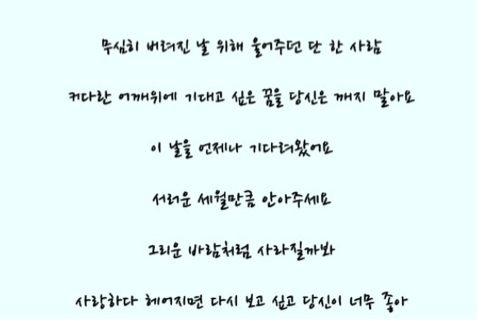 무심히 버려진 날 위해 울어주던 단 한 사람
커다란 어깨위에 기대고 싶은 꿈을 당신은 깨지 말아요
이 날을 언제나 기다려왔어요
서러운 세월만큼 안아주세요
그리운 바람처럼 사라질까봐
사랑하다 헤어지면 다시 보고 싶고 당신이 너무 좋아